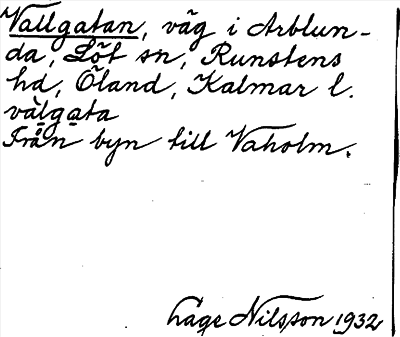 Vallgatan, väg i Arblun-
da, Löt sn, Runstens
hd, Öland, Kalmar l.
vàlgata
Från byn till Vaholm.
Lage Nilsson 1932